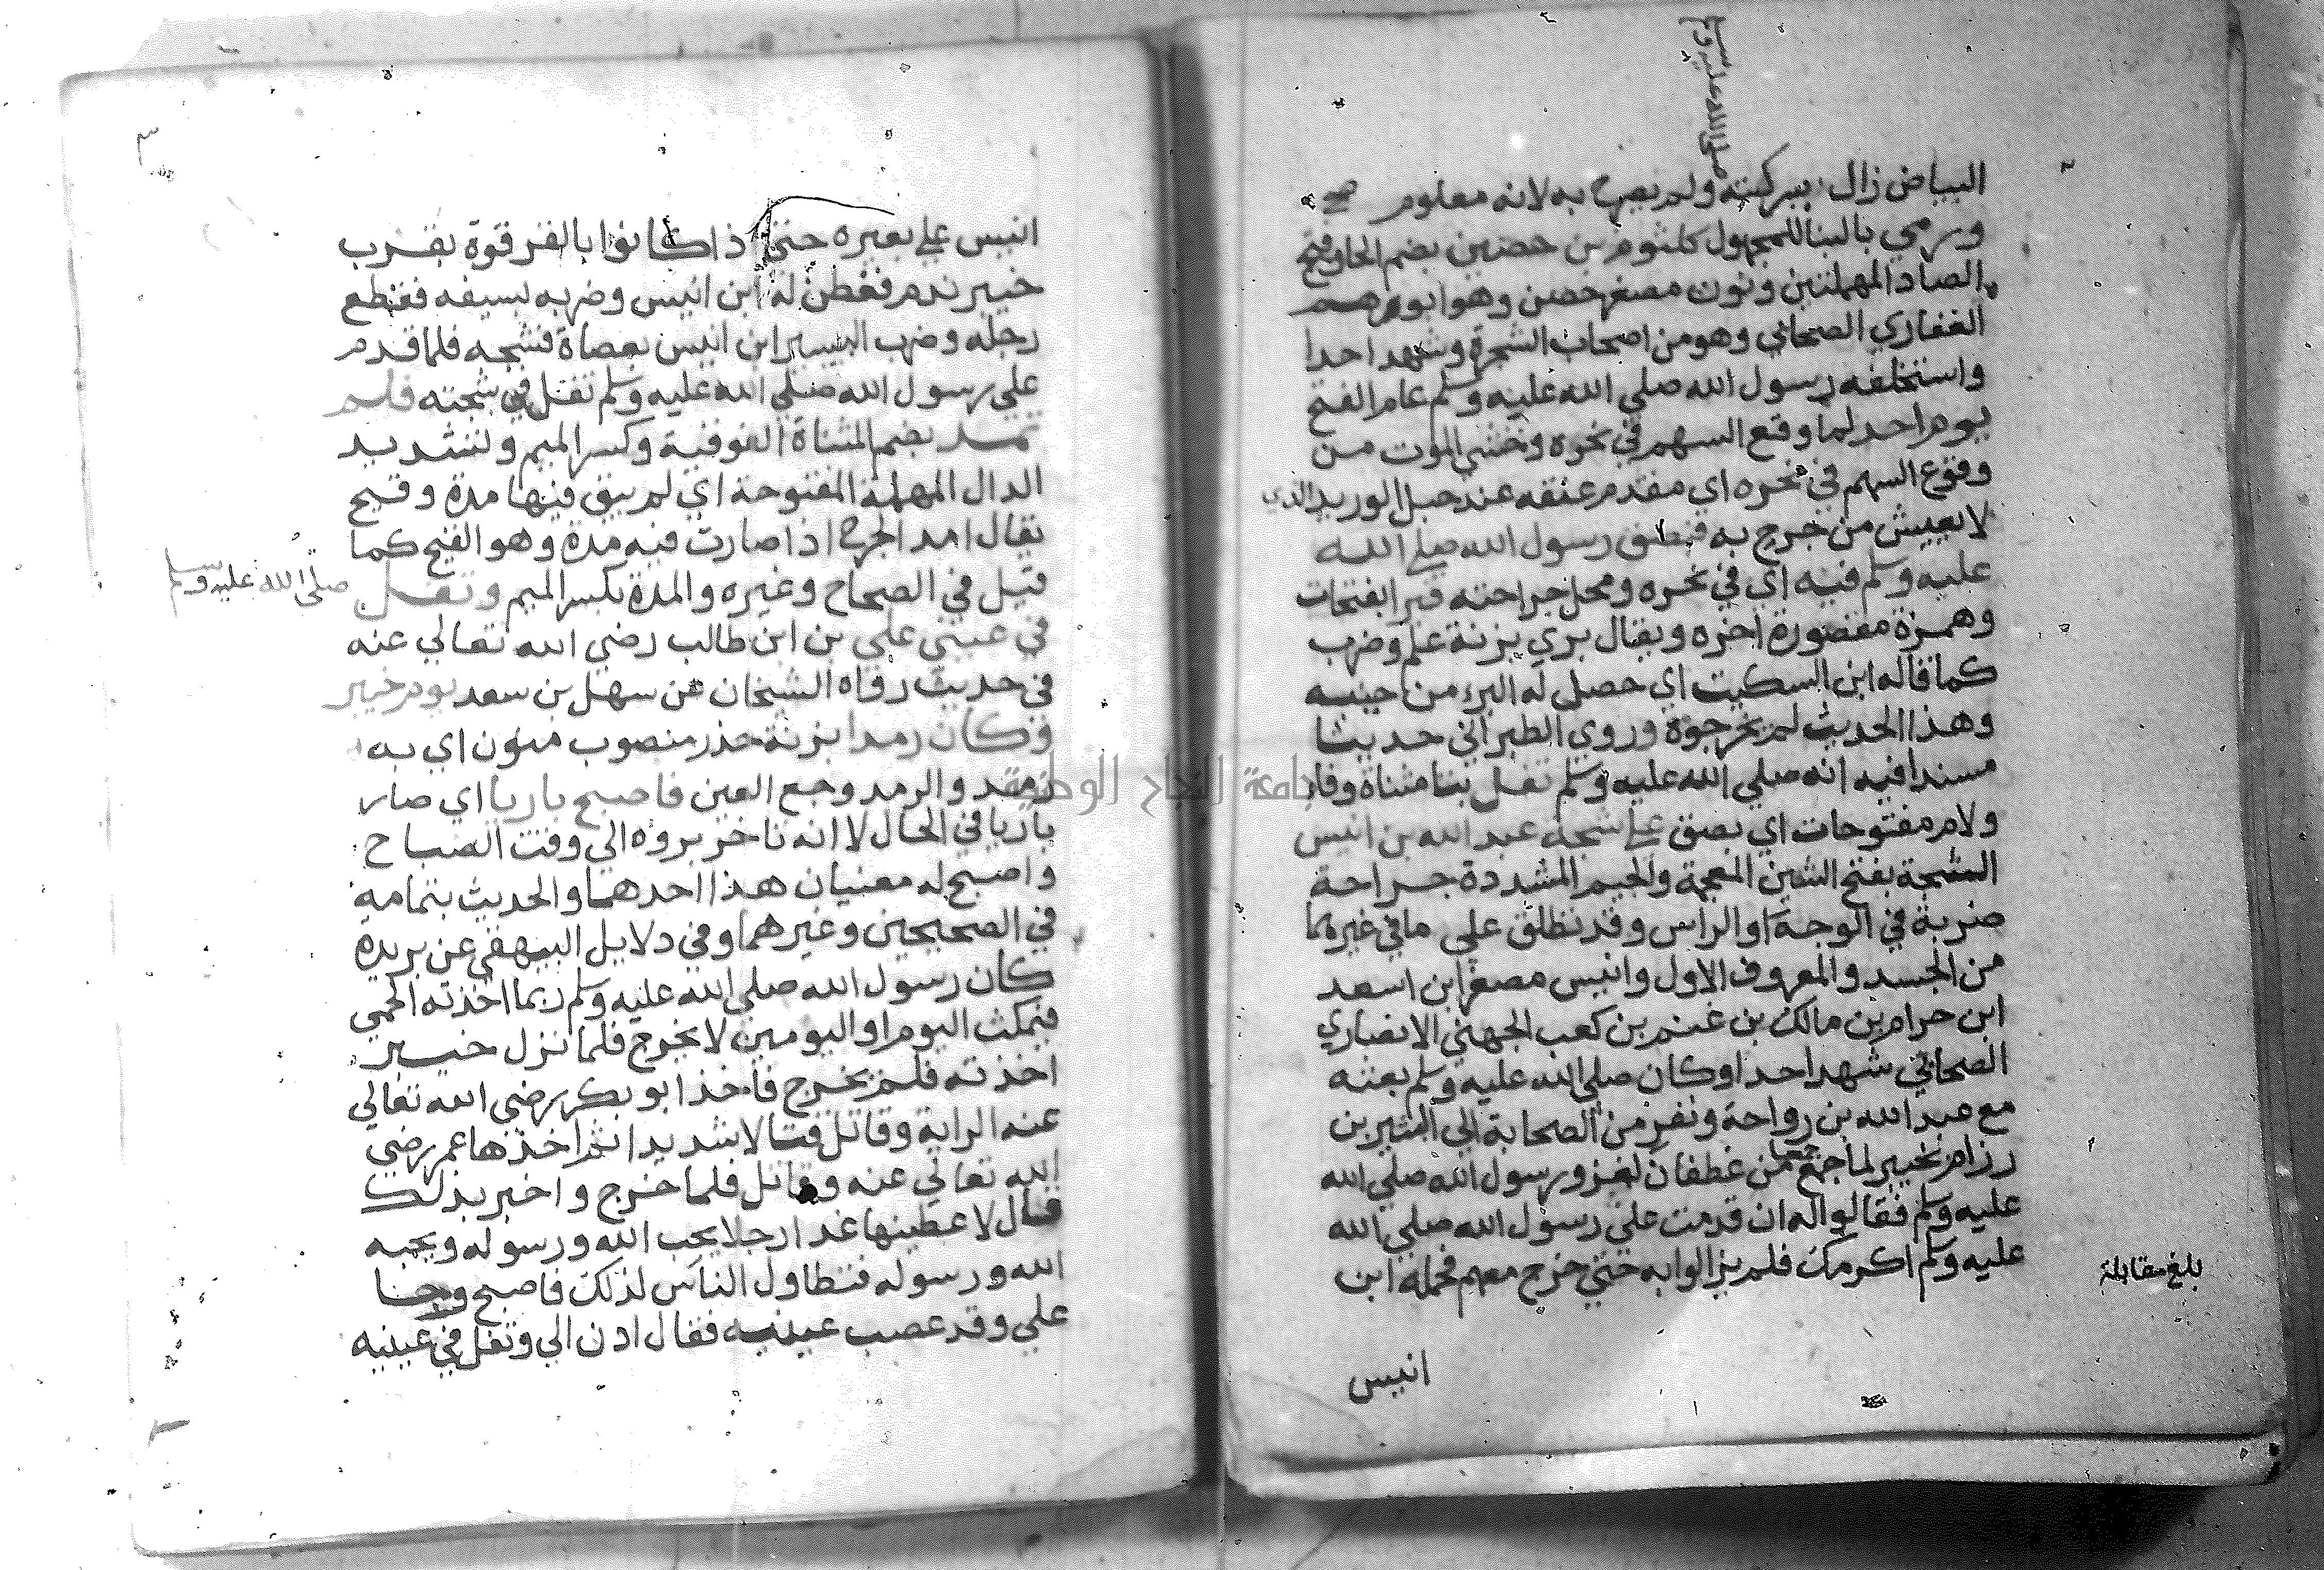 صلى الله عليه وسلم
البياض زال ببركته ولم يصرح به لانه معلوم صح
ورمي بالبنا للمجهول كلثوم بن حصين بضم الحا وفتح
الصاد المهملتين ونون مصغر حصن وهو ابو رهم
الغفاري الصحابي وهو من اصحاب الشجرة وشهد احدا
واستخلفه رسول الله صلي الله عليه وسلم عام الفتح
يوم احد لما وقع السهم في نحره وخشي الموت من
وقوع السهم في نحره اي مقدم عنقه عند حبل الوريد الذي
لا يعيش من جرح به فبصق رسول الله صلي الله
عليه وسلم فيه اي في نحره ومحل جراحته فبرا بفتحات
وهمزة مقصورة اخره ويقال بري بزنة علم وضرب
كما قاله ابن السكيت اي حصل له البرء من حينه
وهذا الحديث لم يخرجوه وروي الطبراني حديثا
مسندا فيه انه صلي الله عليه وسلم تفل بتا مثناة وفا
ولام مفتوحات اي بصق علي شجة عبد الله بن انيس
الشجة بفتح الشين المعجمة والجيم المشددة جراحة
ضربة في الوجه او الراس وقد تطلق علي ما في غيرهما
من الجسد والمعروف الاول وانيس مصغر ابن اسعد
ابن حرام بن مالك بن غنم بن كعب الجهني الانصاري
الصحابي شهد احدا وكان صلي الله عليه وسلم بعثه
مع عبد الله بن رواحة ونفر من الصحابة الي اليسير بن
رزام بخيبر لما جمع جمعا من غطفان لغزو رسول الله صلي الله
عليه وسلم فقالوا له ان قدمت علي رسول الله صلي الله
عليه وسلم اكرمك فلم يزالوا به حتي خرج معهم فحمله ابن
بلغ مقابلة
انيس
٣
انيس علي بعيره حتي اذا كانوا بالقرقوة بقرب
خيبر ندم ففطن له ابن انيس وضربه بسيفه فقطع
رجله وضرب اليسير ابن انيس بعصاة فشجه فلما قدم
علي رسول الله صلي الله عليه وسلم تفل في شجته فلم
تمد بضم المثناة الفوقية وكسر الميم وتشديد
الدال المهملة المفتوحة اي لم يبق فيها مدة وقيح
يقال امد الجرح اذا صارت فيه مدة وهو القيح كما
قيل في الصحاح وغيره والمدة بكسر الميم وتفل صلى الله عليه وسلم
في عيني علي بن ابن طالب رضي الله تعالي عنه
في حديث رواه الشيخان عن سهل بن سعد يوم خيبر
وكان رمدا بزنة حذر منصوب منون اي به
رمد والرمد وجع العين فاصبح باريا اي صار
باريا في الحال لا انه تاخر بروه الي وقت الصباح
واصبح له معنيان هذا احدهما والحديث بتمامه
في الصحيحين وغيرهما وفي دلايل البيهقي عن بريدة
كان رسول الله صلي الله عليه وسلم ربما اخذته الحمي
فيمكث اليوم او اليومين لا يخرج فلما نزل خيبر
اخذته فلم يخرج فاخذ ابو بكر رضي الله تعالي
عنه الراية وقاتل قتالا شديدا ثم اخذها عمر رضي
الله تعالي عنه وقاتل فلما خرج واخبر بذلك
قال لاعطينها غدا رجلا يحب الله ورسوله ويحبه
الله ورسوله فتطاول الناس لذلك فاصبح وجا
علي وقد عصب عينيه فقال ادن الي وتفل في عينيه
جامعة النجاح الوطنية